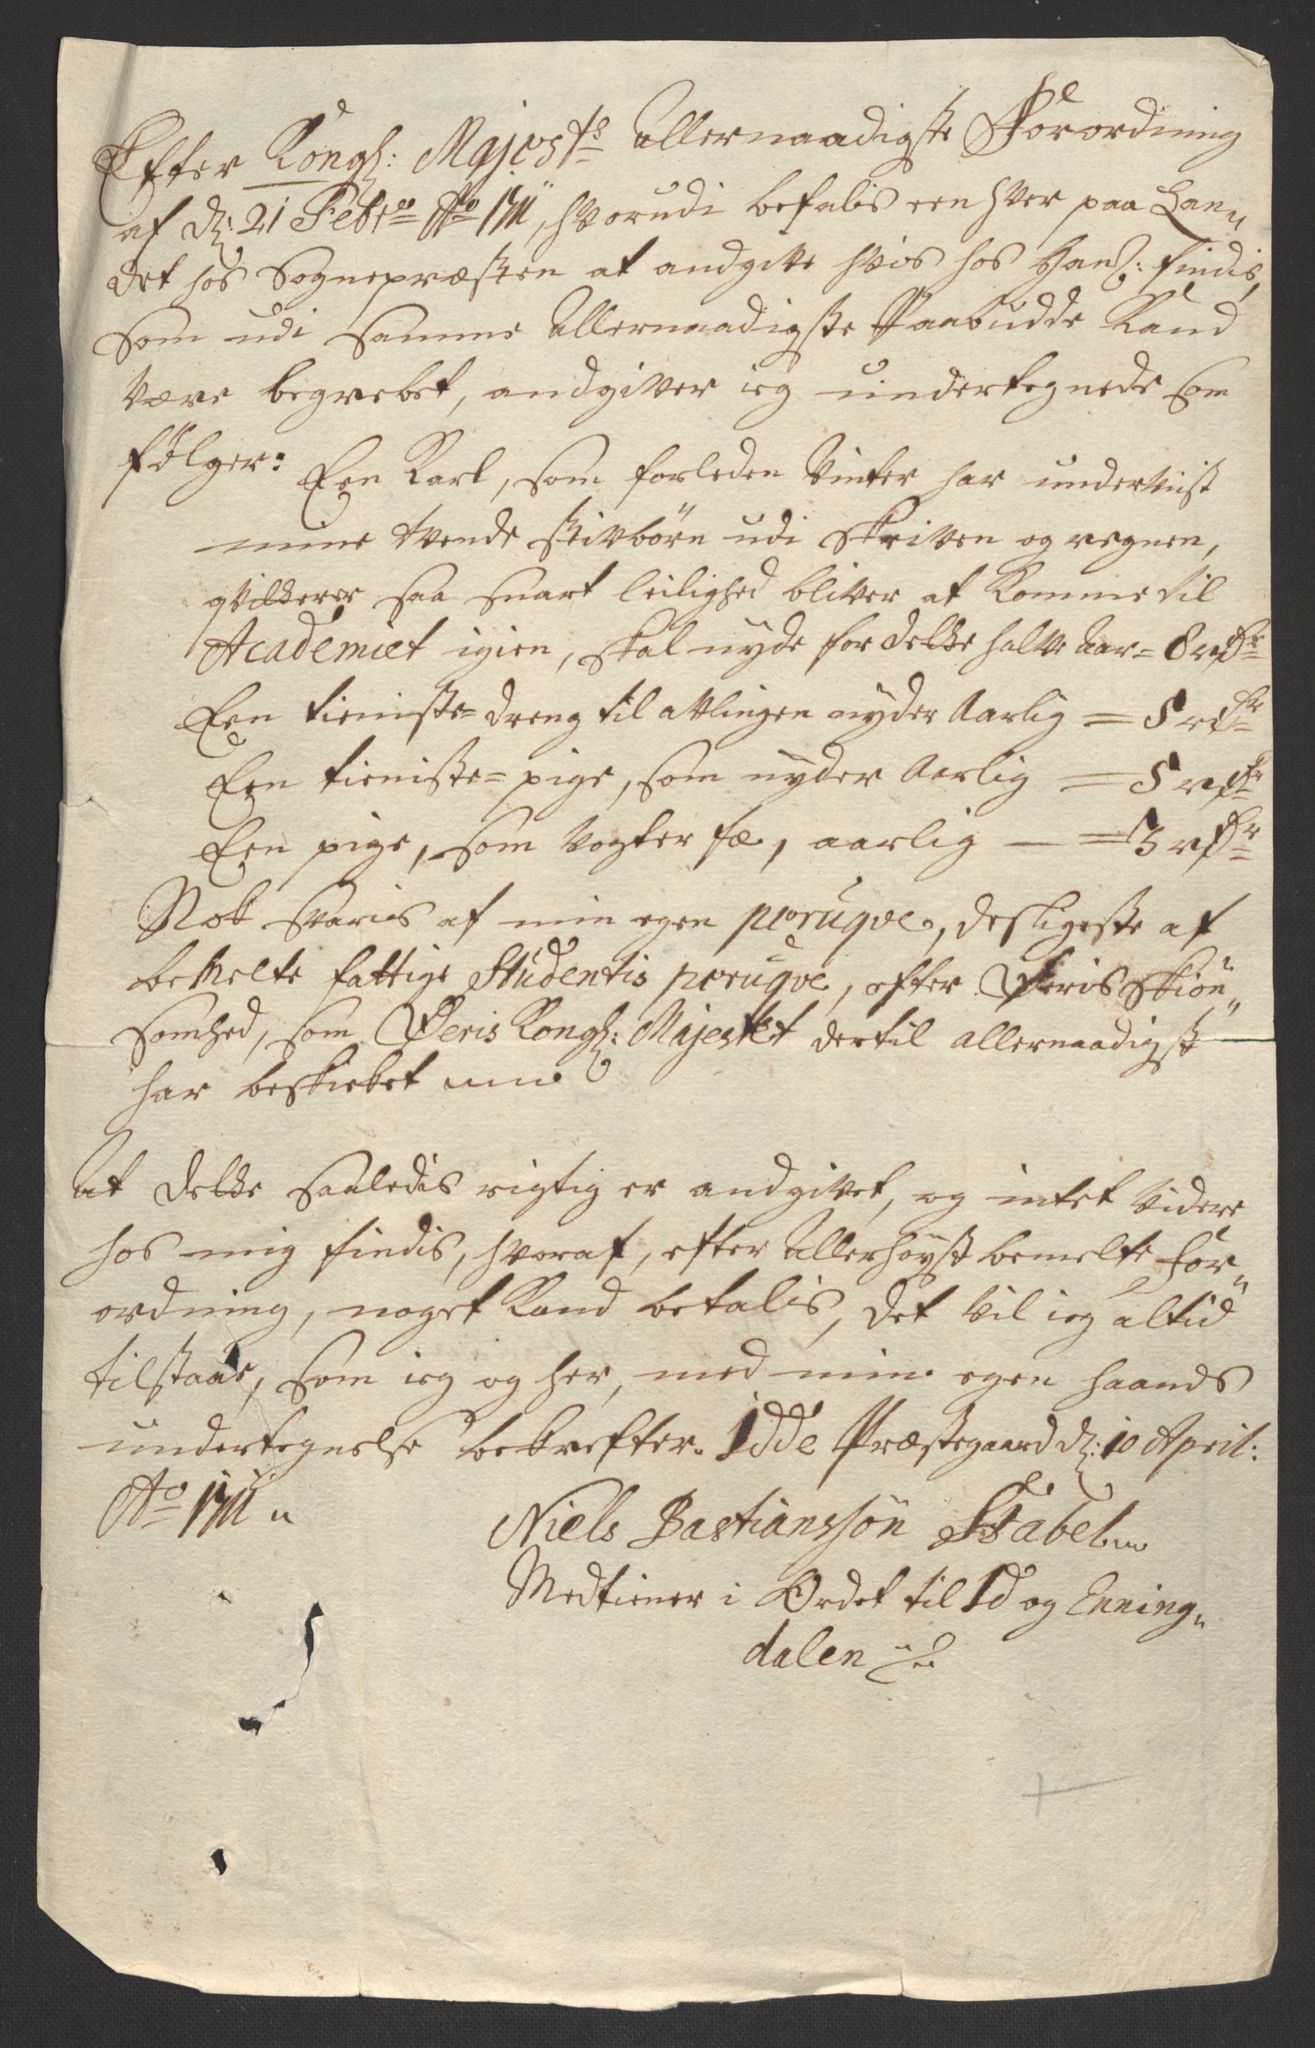 Efter Kongl: Majests Allernaadigste Forordning
af d: 21 Febr Ao 1711, hvorudi befalis een hver paa Lan„
det hos Sognepræsten at andgive hvis hos Ham findis,
Som udi Samme Allernaadigste Paabudde Kand
være begrebet, andgiver ieg undertegnede som
følger:
Een Karl, som forleden Vinter har underviist
mine tvende stivbörn udi skriven og regnen,
qvilkener saa snart leilighed bliver at komme til
Academiet igien, skal nyde for dette halve Aar = 8 rdr
Een tieniste-dreng til avlingen nyder Aarlig = 5 rdr
Een tieniste-pige, som nyder Aarlig = 5 rdr
Een pige, som vogter fæ, aarlig — = 3 rdr
Nok svaris af min egen peruqve, desligeste af
bemelte fattige Studentis peruqve, efter Deris Skiön„
somhed, som Deris Kongl: Majestet dertil allernaadigst
har beskicket
At dette saaledis rigtig er andgivet, og intet videre
hos mig findis, hvoraf, efter Allerhöyst bemelte For„
ordning, noget Kand betalis, det vil ieg altid
tilstaae, som ieg og her, med min egen haands
undertegnelse bekrefter. Idde Præstegaard d: 10 April:
Ao 1711
Niels Bastianssön Stabel
Medtiener i Ordet til Id og Enning„
dalen